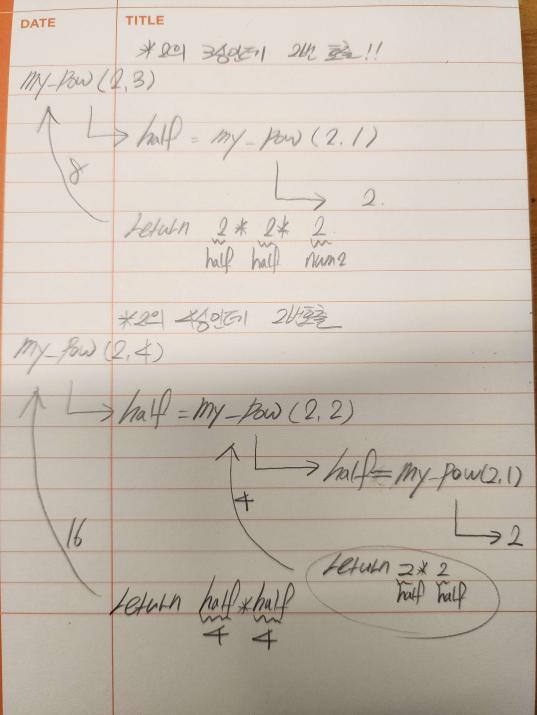 DATE TITLE
*2의 3승인데 2번 호출!!
my_pow(2,3)
half = my_pow(2,1)
8
2.
return 2* 2* 2
half half num2
*2의 4승인데 2번호출
my_pow(2,4)
half = my_pow(2,2)
half = my_pow(2,1)
4
2
16
return 2* 2
half half
return half*half
4 4